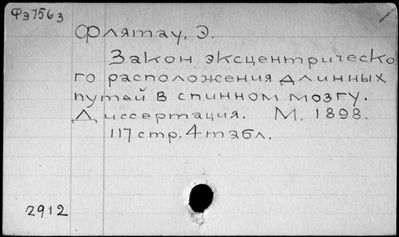 Фэ7563
Флятау, Э.
Закон эксцентрическо
го расположения длинных
путей в спинном мозгу.
Диссертация. М. 1898.
117 стр. 4 табл.
2912